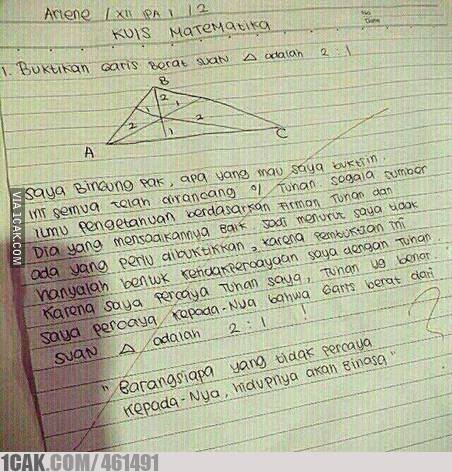 Arlene / XII IPA 1 / 2
No
Date
KUIS MATEMATIKA
1. Buktikan Garis Berat suatu △ adalah 2 : 1
B
2
1
1
2
2
1
A
C
Saya Bingung Pak, apa yang mau saya buktiin.
Ini semua telah dirancang o/ Tuhan. Segala sumber
ilmu pengetahuan berdasarkan Firman Tuhan dan
Dia yang menjadikannya Baik. Jadi menurut saya tidak
ada yang perlu dibuktikkan, karena pembuktian ini
hanyalah bentuk ketidakpercayaan saya dengan Tuhan.
Karena saya percaya Tuhan saya, Tuhan yg benar.
saya percaya kepada-Nya bahwa Garis berat dari
suatu △ adalah 2 : 1 !
?
"Barangsiapa yang tidak percaya
kepada-Nya, hidupnya akan Binasa"
VIA 1CAK.COM
1CAK.COM/461491